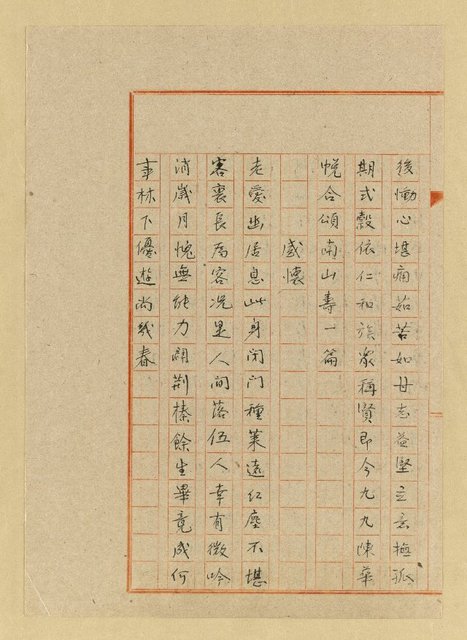 後慟心堪痛茹苦如母志益堅立言撫孤
期式穀依仁和族眾稱賢即今九九陳華
悅合頌南山壽一篇
感懷
老愛幽居息此身閉門種菜遠紅塵不堪
客裏長為客况是人間落伍人幸有微吟
消歲月愧無能力闢荆榛餘生畢竟成何
事林下優遊尚幾春